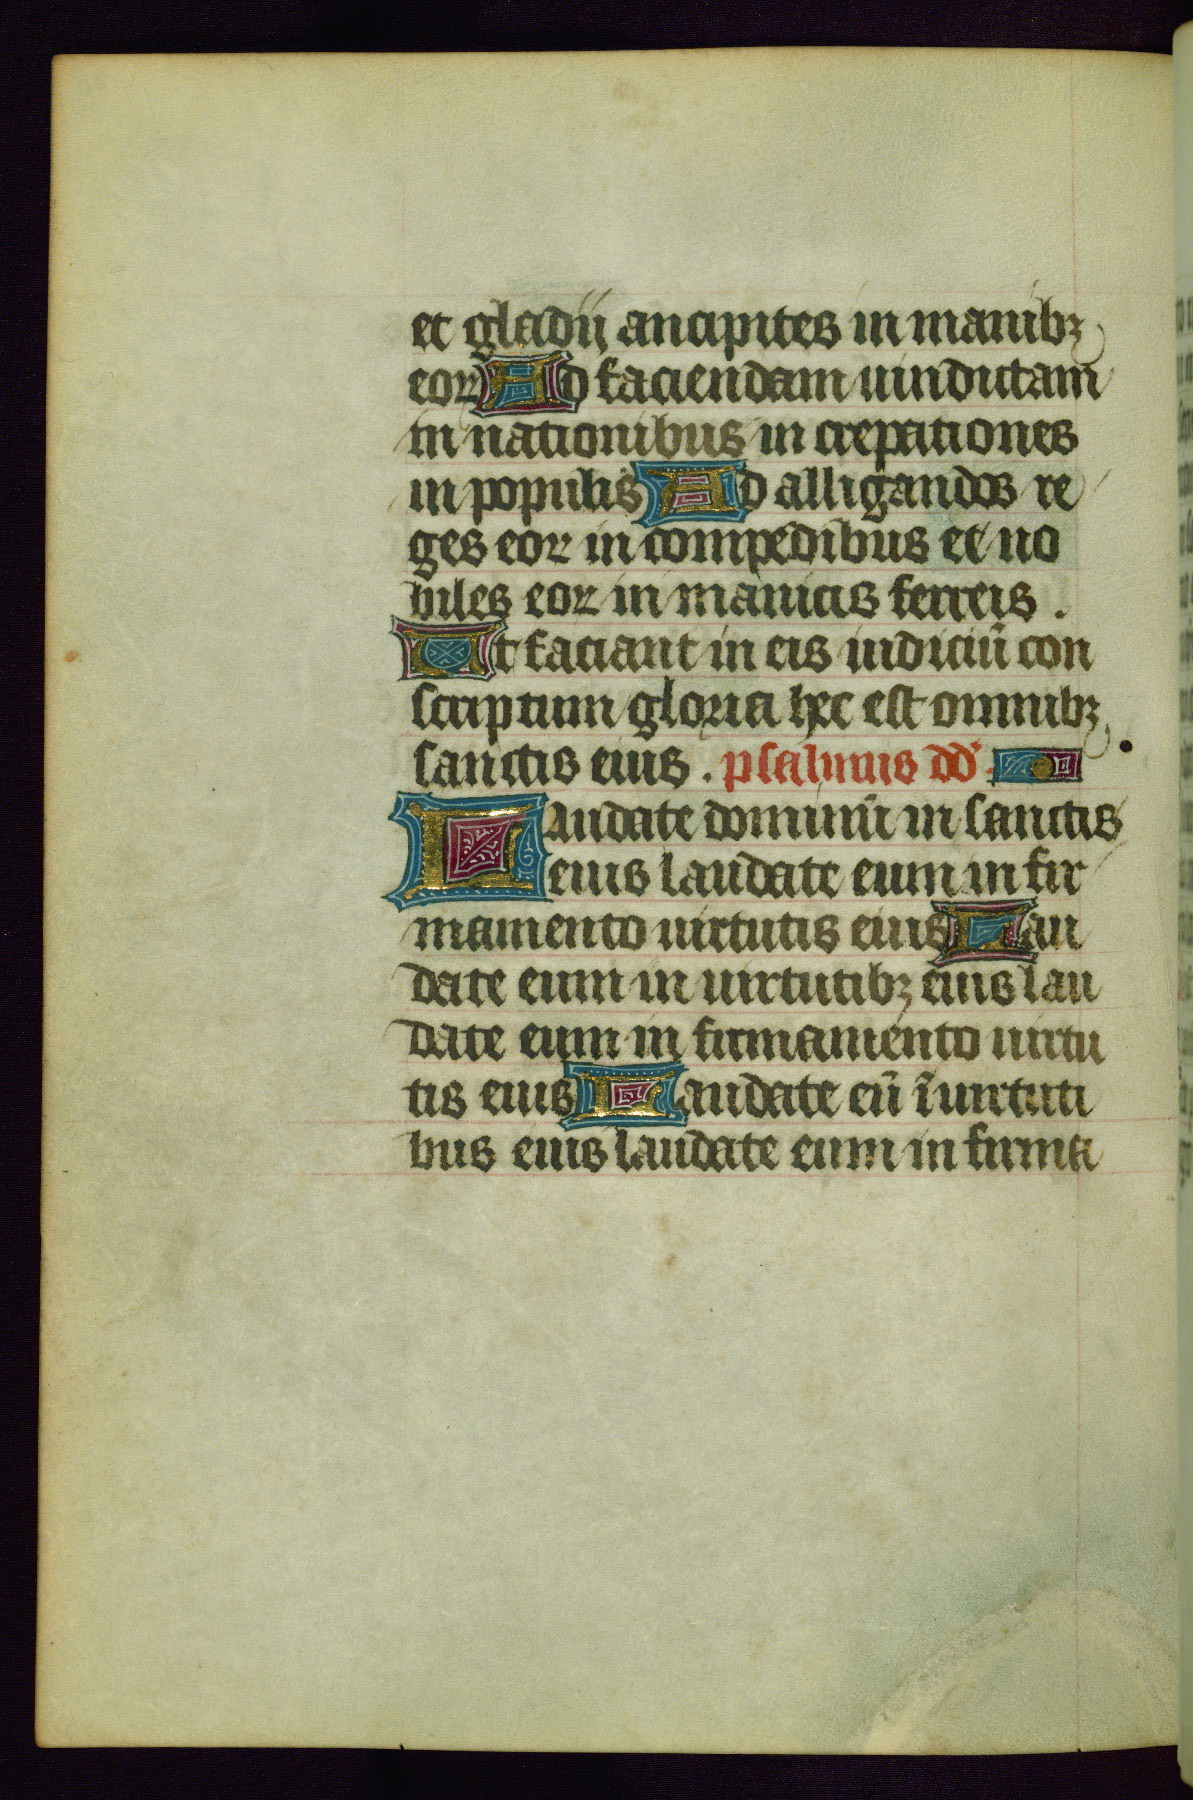 et gladij ancipites in manibꝫ
eoꝝ Ad faciendam uindictam
in nationibus in crepationes
in populis Ad alligandos re
ges eoꝝ in compedibus et no
biles eoꝝ in manicis ferreis .
Ut faciant in eis iudiciū con
scriptum gloria hec est omnibꝫ
sanctis eius . psalmus dd̄ .
Laudate dominum in sanctis
eius laudate eum in fir
mamento uirtutis eius Lau
date eum in uirtutibꝫ eius lau
date eum in firmamento uirtu
tis eius Laudate eū ī uirtuti
bus eius laudate eum in firma